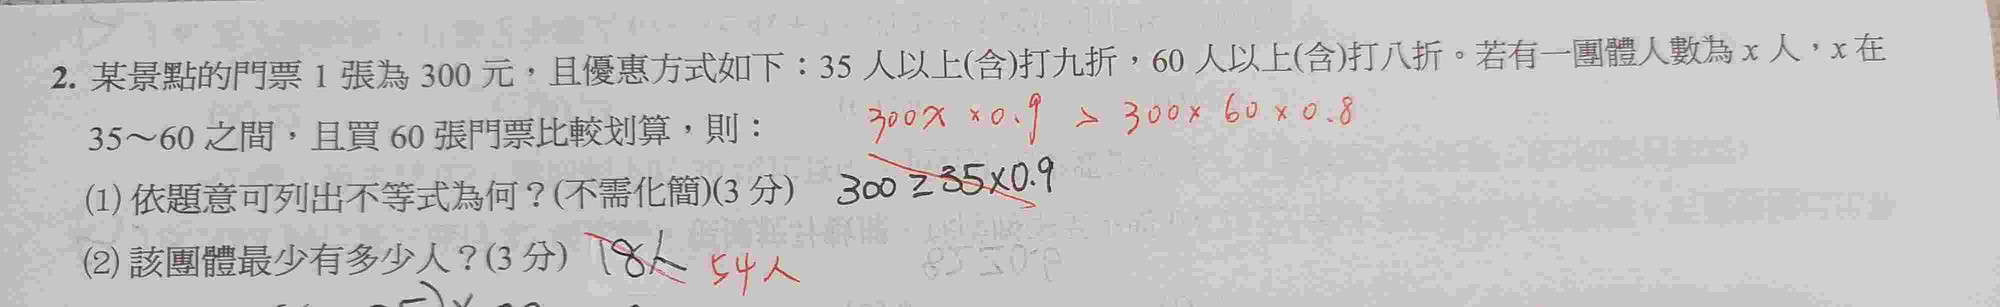 2. 某景點的門票 1 張為 300 元，且優惠方式如下：35 人以上(含)打九折，60 人以上(含)打八折。若有一團體人數為 x 人，x 在
35～60 之間，且買 60 張門票比較划算，則：
300x × 0.9 > 300 × 60 × 0.8
(1) 依題意可列出不等式為何？(不需化簡)(3 分) 300 ≥ 35×0.9
(2) 該團體最少有多少人？(3 分) 18人 54人